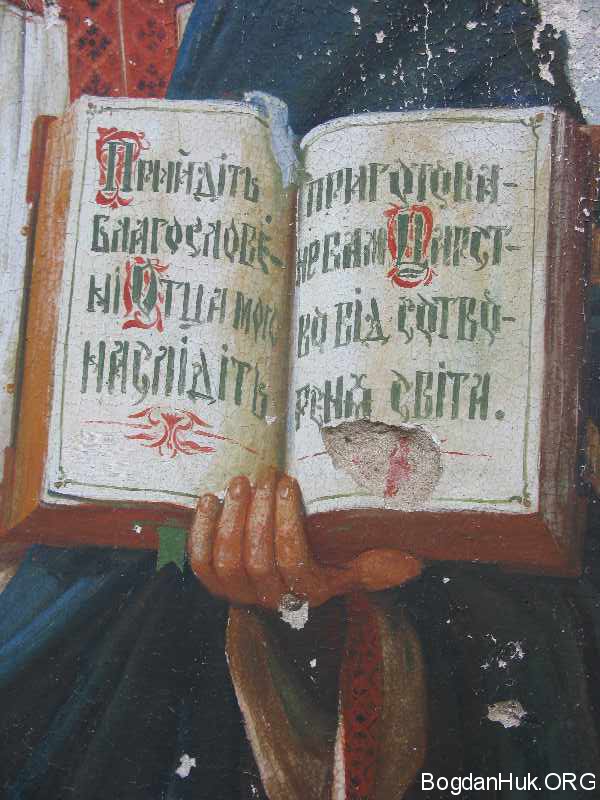 Прийдіть
благослове-
ні Отца мого
наслідіть
приготова-
не вам Царст-
во від сотво-
реня світа.
BogdanHuk.ORG